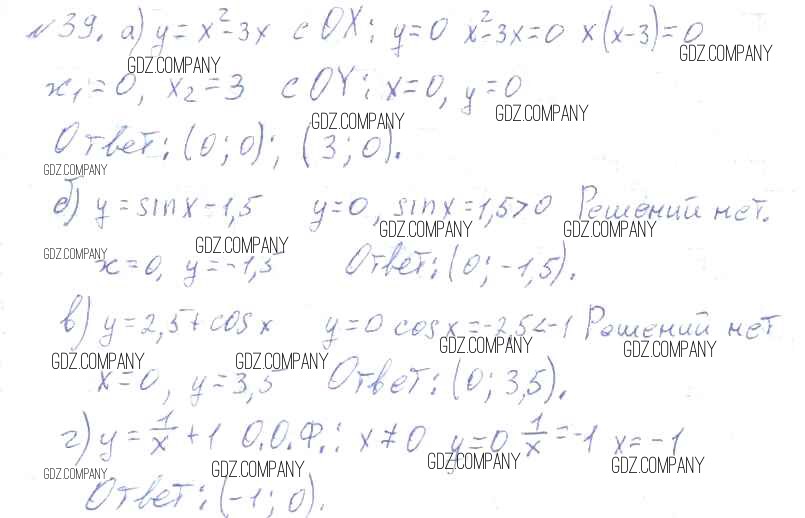 №39. а) y = x²-3x с OX: y=0 x²-3x=0 x(x-3)=0
GDZ.COMPANY GDZ.COMPANY
x₁=0, x₂=3 с OY: x=0, y=0
GDZ.COMPANY GDZ.COMPANY
Ответ: (0;0); (3;0).
GDZ.COMPANY
б) y=sinx-1,5 y=0, sinx=1,5>0 Решений нет.
GDZ.COMPANY GDZ.COMPANY GDZ.COMPANY GDZ.COMPANY
x=0, y=-1,5 Ответ: (0;-1,5).
в) y=2,5+cosx y=0 cosx=-2,5<-1 Решений нет
GDZ.COMPANY GDZ.COMPANY GDZ.COMPANY GDZ.COMPANY
x=0, y=3,5 Ответ: (0;3,5).
г) y=1/x+1 О.О.Ф.: x≠0 y=0 1/x=-1 x=-1
GDZ.COMPANY GDZ.COMPANY GDZ.COMPANY GDZ.COMPANY
Ответ: (-1;0).